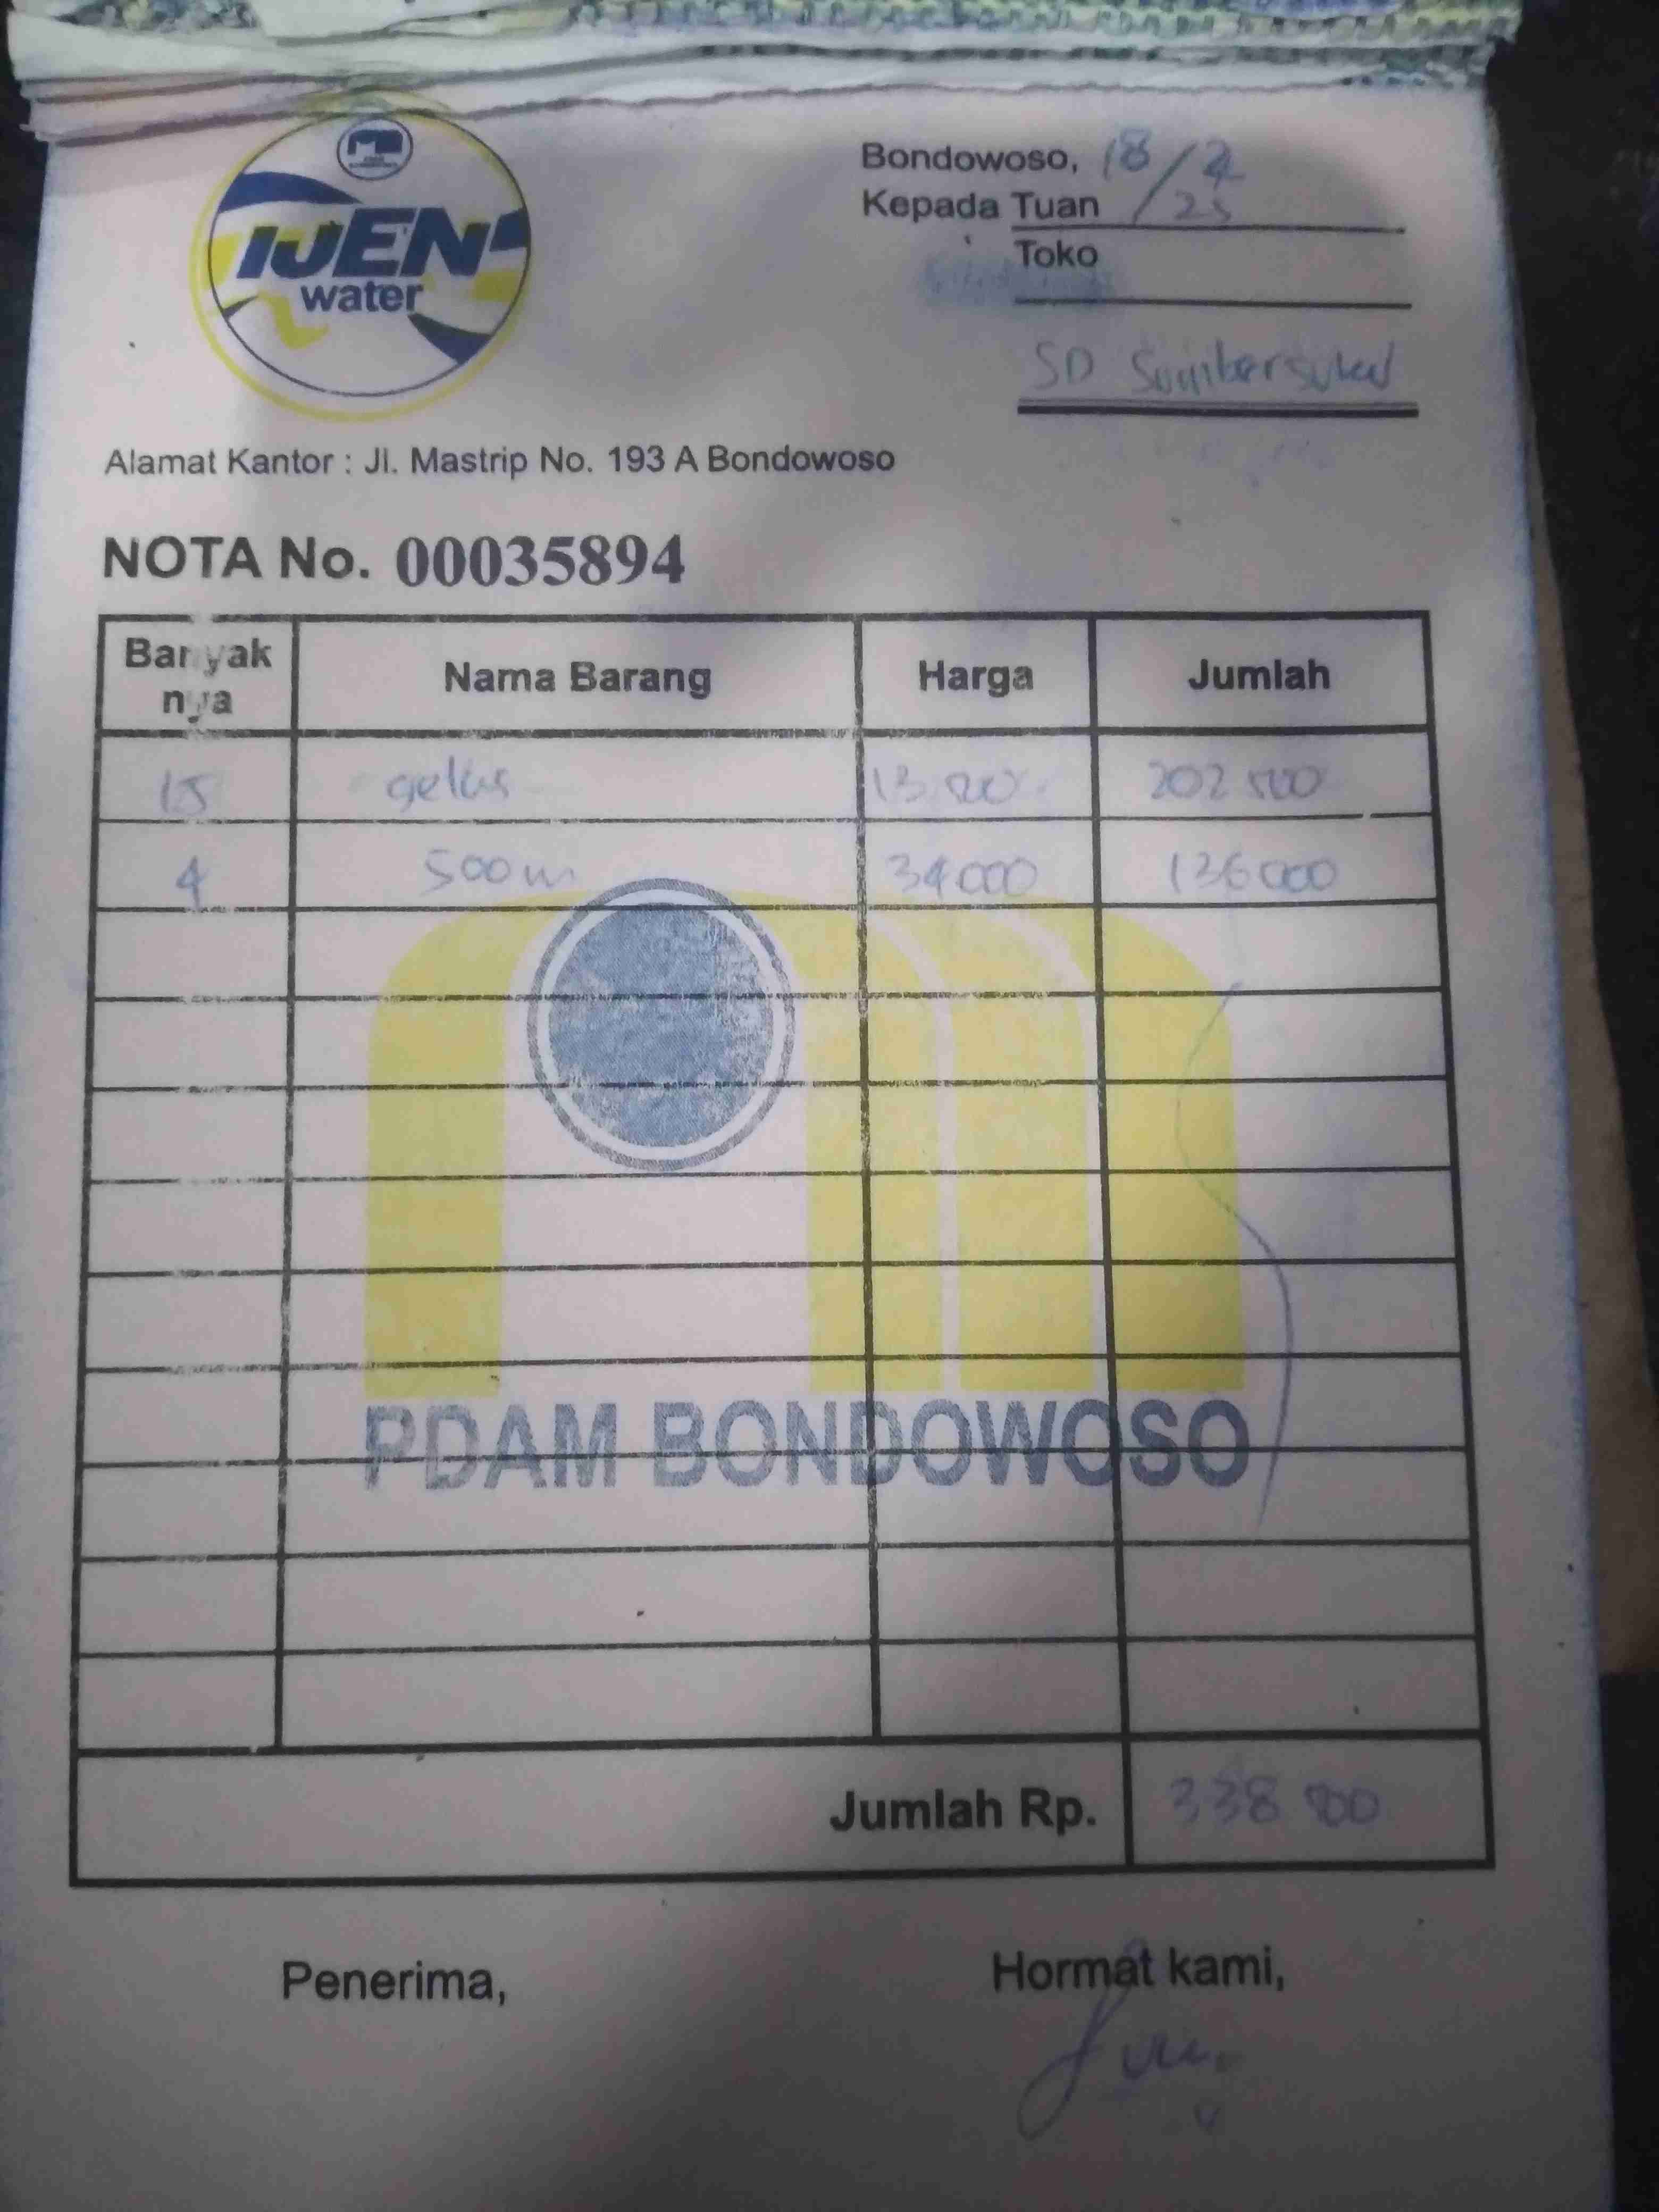 IJEN
water
Bondowoso, 18/2
Kepada Tuan /25
Toko
SD Sumbersuko
Alamat Kantor : Jl. Mastrip No. 193 A Bondowoso
NOTA No. 00035894
Banyak nya Nama Barang Harga Jumlah
15 gelas 13 500 202 500
4 500 m 34 000 136 000
PDAM BONDOWOSO
Jumlah Rp. 338 500
Penerima, Hormat kami,